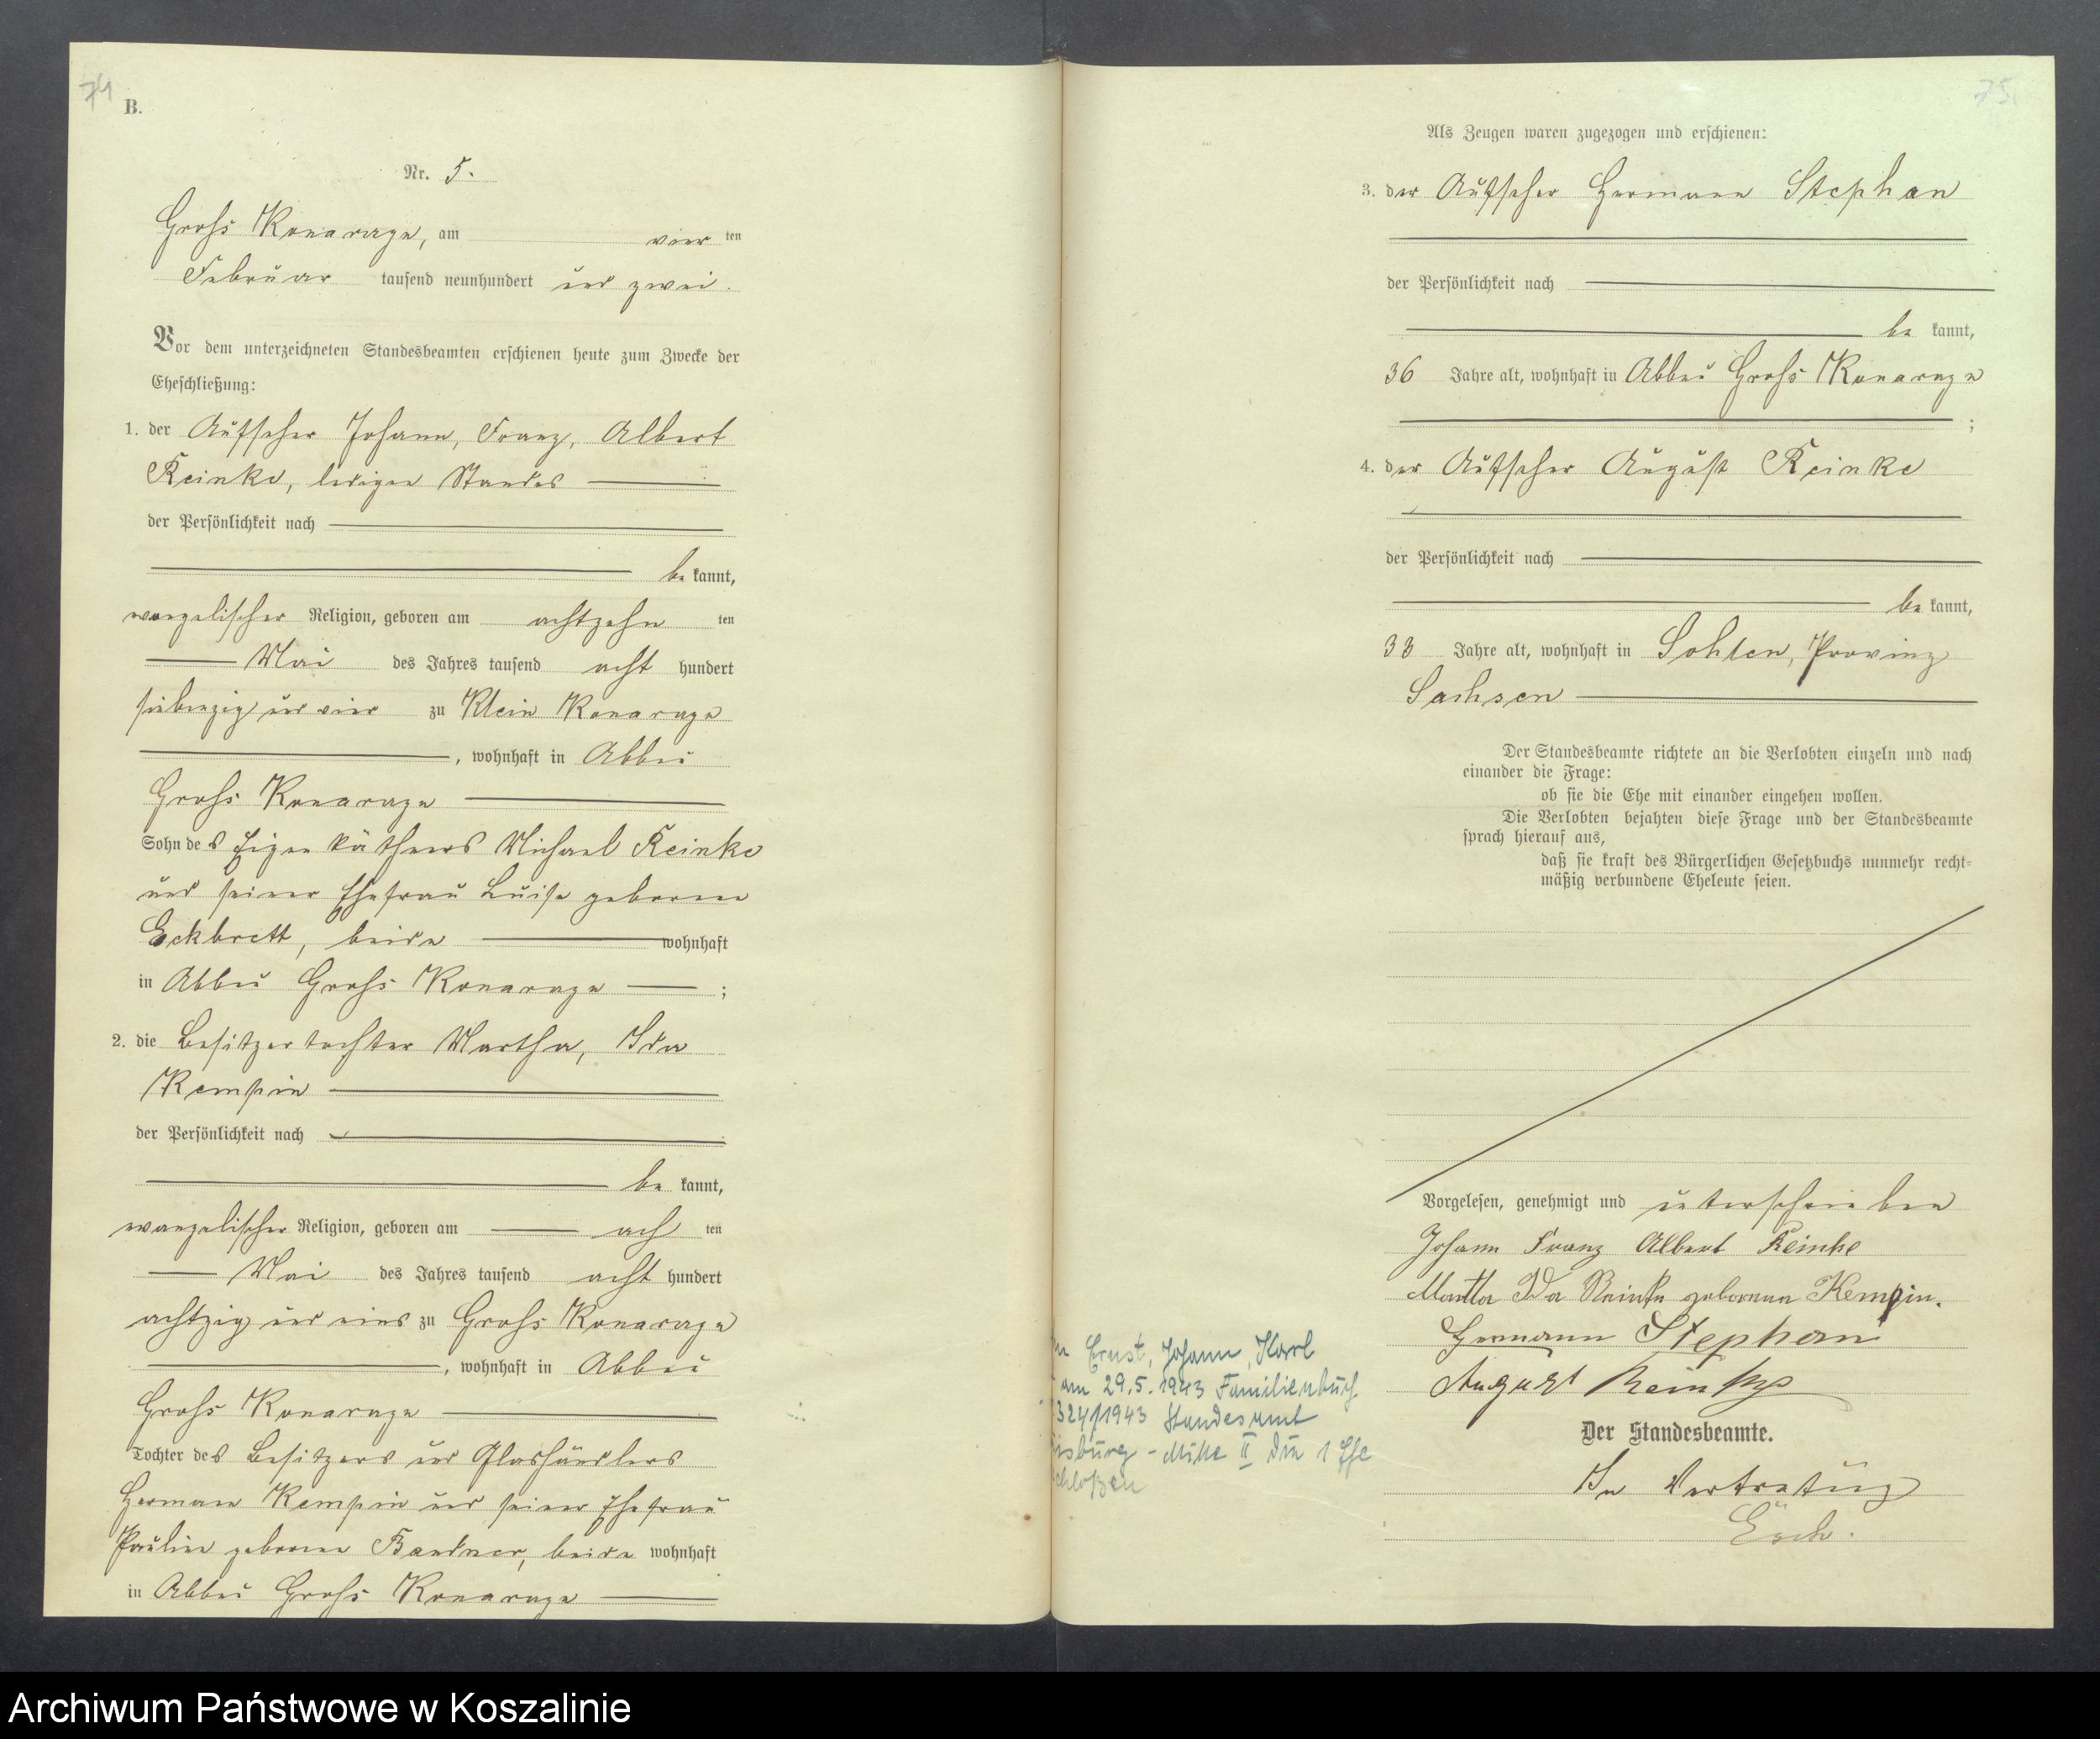 74
B.
Nr. 5.
Gross Konarzyn, am vier ten
Februar tausend neunhundert und zwei.
Vor dem unterzeichneten Standesbeamten erschienen heute zum Zwecke der
Eheschließung:
1. der Aufseher Johann, Franz, Albert
Reinke, ledigen Standes
der Persönlichkeit nach
be kannt,
evangelischer Religion, geboren am achtzehn ten
Mai des Jahres tausend acht hundert
siebenzig und vier zu Klein Konarzyn
, wohnhaft in Abbau
Gross Konarzyn
Sohn des Eigenkäthners Michael Reinke
und seiner Ehefrau Luise geborene
Eckbrett, beide wohnhaft
in Abbau Gross Konarzyn ;
2. die Besitzertochter Martha, Ida
Kempin
der Persönlichkeit nach
be kannt,
evangelischer Religion, geboren am ach ten
Mai des Jahres tausend acht hundert
achtzig und eins zu Gross Konarzyn
, wohnhaft in Abbau
Gross Konarzyn
Tochter des Besitzers und Glashändlers
Herman Kempin und seiner Ehefrau
Pauline geborene beide wohnhaft
in Abbau Gross Konarzyn
75
Als Zeugen waren zugezogen und erschienen:
3. der Aufseher Hermann Stephan
der Persönlichkeit nach
be kannt,
36 Jahre alt, wohnhaft in Abbau Gross Konarzyn
;
4. der Aufseher August Reinke
der Persönlichkeit nach
be kannt,
33 Jahre alt, wohnhaft in Sohlen, Provinz
Sachsen
Der Standesbeamte richtete an die Verlobten einzeln und nach
einander die Frage:
ob sie die Ehe mit einander eingehen wollen.
Die Verlobten bejahten diese Frage und der Standesbeamte
sprach hierauf aus,
daß sie kraft des Bürgerlichen Gesetzbuchs nunmehr recht-
mäßig verbundene Eheleute seien.
Vorgelesen, genehmigt und unterschrieben
Johann Franz Albert Reinke
Martha Ida Reinke geborene Kempin.
Hermann Stephan
August Reinke
Der Standesbeamte.
In Vertretung
Ernst, Johann, Karl
am 29.5.1943 Familienbuch
324/1943 Standesamt
isburg - Mitte II die 1 Ehe
chloßen
Archiwum Państwowe w Koszalinie